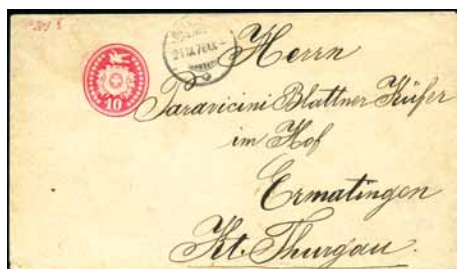 10
Herrn
Paravicini Blattner Küfer
im Hof
Ermatingen
Kt. Thurgau.